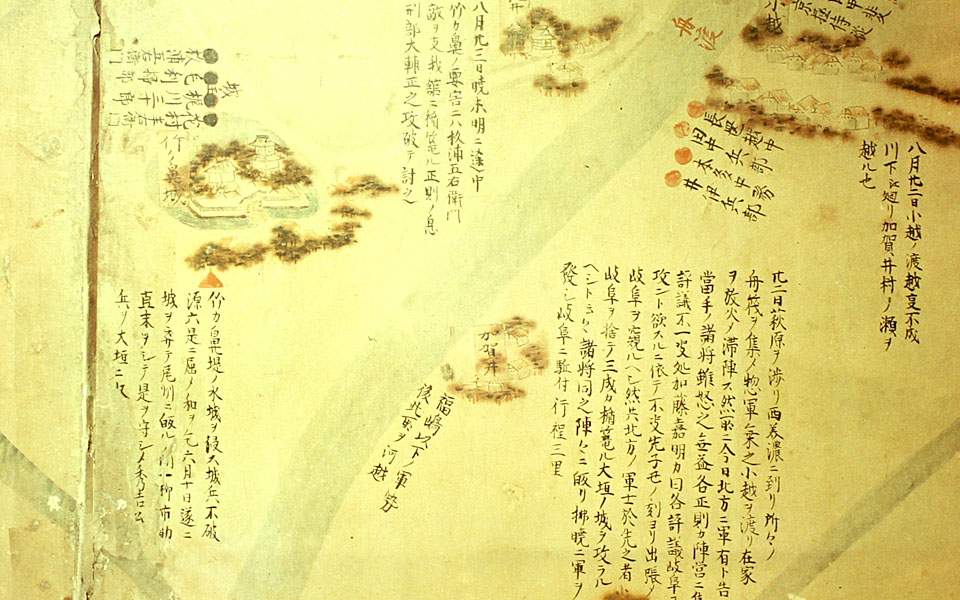 小越
京極侍従
八月廿二日小越ノ渡越夏不成
川下ヲ廻リ加賀井村ノ瀬ヲ
越ル也
長岡越中
田中兵部
本多中務
井伊兵部
廿二日萩原ヲ渉リ西美濃ニ到リ所々ノ
舟筏ヲ集メ惣軍乗之小越ヲ渡リ在家
ヲ放火ノ滞陣ス然ニ今日北方ニ軍有ト告
當手ノ諸将雖怒之無益各正則カ陣営ニ集
評議不一决処加藤嘉明カ曰各評議岐阜
攻ニト欲スルニ依テ不及先子也ノ刻ヨリ出張ノ
岐阜ヲ窺ルヘシ然共北方ノ軍士於先之者
岐阜ヲ捨テ三成カ楯篭ル大垣ノ城ヲ攻ラル
諸将同之陣々ニ皈リ拂暁ニ軍ヲ
發シ岐阜ニ馳付行程三里
加賀井
福嶋以下ノ軍勢
後此栗ヲ河越
八月廿二日暁未明ニ中
竹カ鼻ノ要害ニハ杦浦五右衛門
敵ヲ支我舘ニ楯篭ル正則ノ息
刑部大輔正之攻破テ討之
城主
花村半左衛門
梶川三十郎
毛利掃部
杦浦五右衛門
竹ノ鼻城
竹カ鼻堤ノ水城ヲ浸ス城兵不破
源六是ニ屈ノ和ヲ乞六月十日遂ニ
城ヲ弃テ尾州ニ皈ル一柳市助
直末ヲシテ是ヲ守シメ秀吉公
兵ヲ大垣ニ